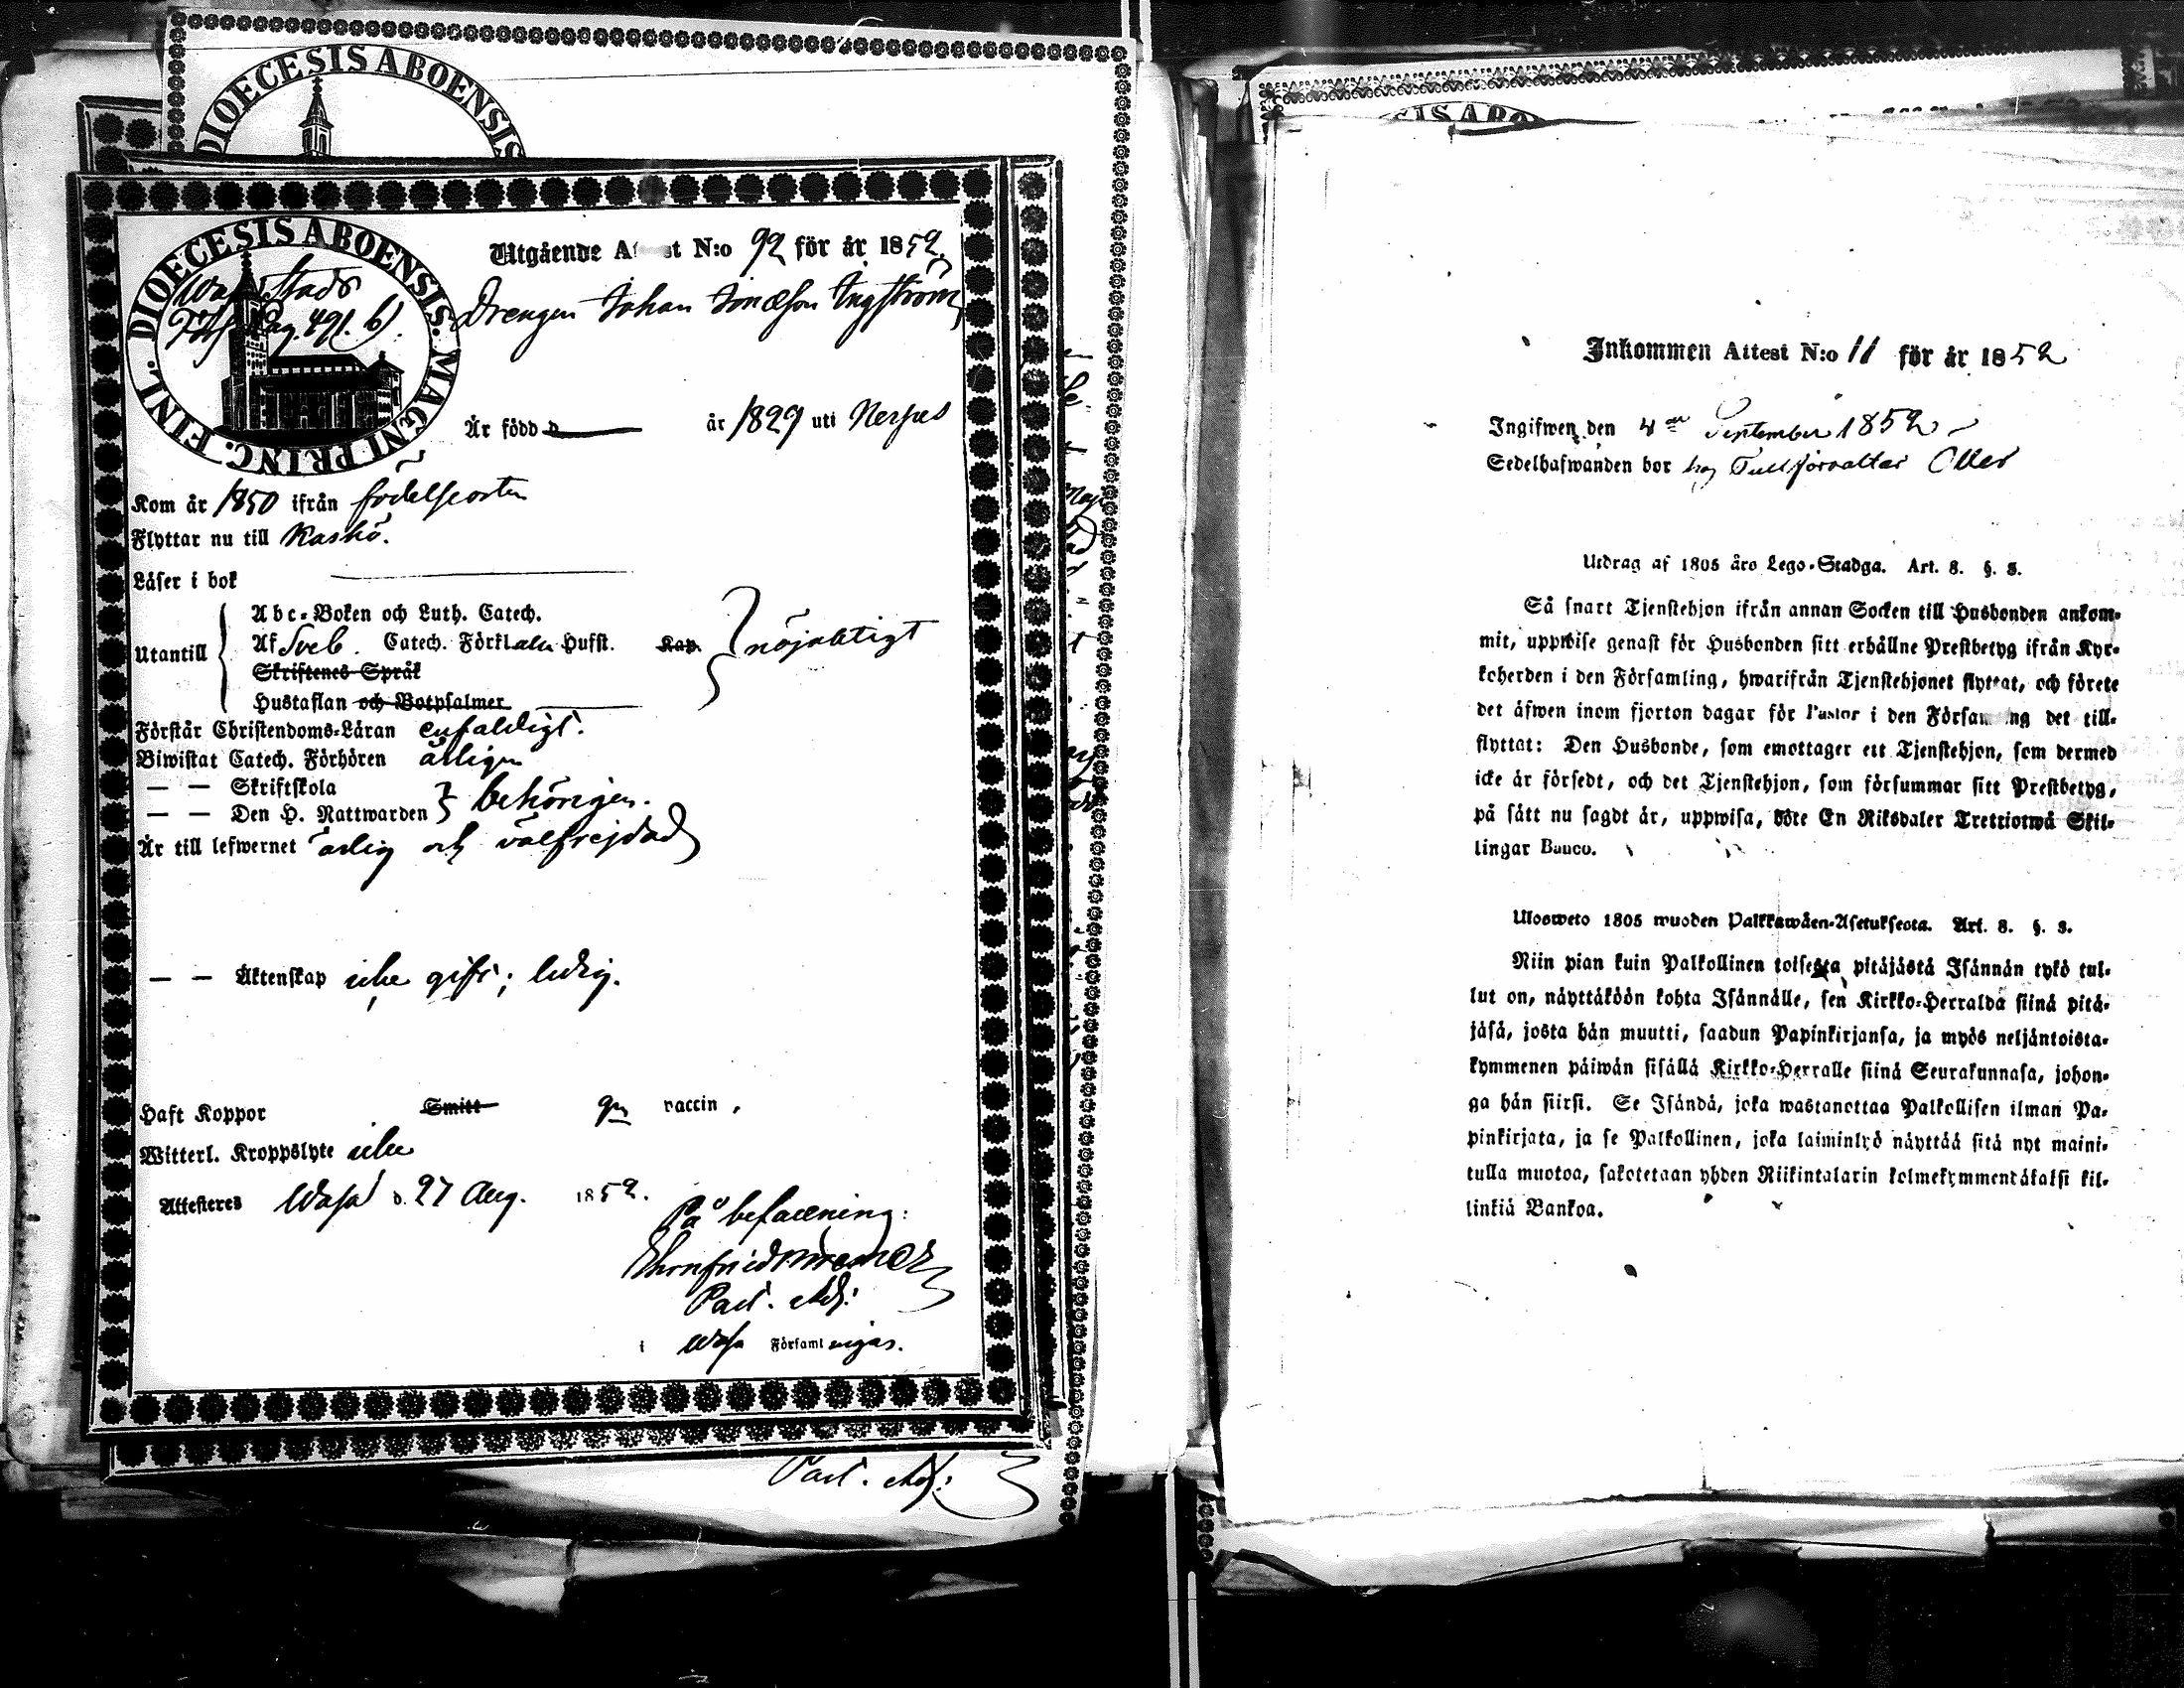 DIOECESIS ABOENSIS
DIOECESIS ABOENSIS. MAGNI PRINC. FINL.
Wasa Stads
Pag. 491. b).
Utgående Attest N:o 92 för år 1852.
Drengen Johan Ingström
Är född d år 1829 uti Nerpes
Kom år 1850 ifrån födelseorten
Flyttar nu till Kaskö.
Läser i bok
Utantill
Abc-Boken och Luth. Catech.
Af Sveb. Catech. Förkl Hufst. Kap.
nöjaktigt
Skriftenes Språk
Hustaflan och Botpsalmer
Förstår Christendoms-Läran enfaldigt.
Biwistat Catech. Förhören årligen
— — Skriftskola
— — Den H. Nattwarden behörigen.
Är till lefwernet ärlig och välfrejdad
— — Äktenskap icke gift; ledig.
Haft Koppor Smitt gm vaccin.
Witterl. Kroppslyte icke
Attesteras Wasa d. 27 Aug. 1852.
På befallning:
Past. Adj:
i Wasa Församlingar.
Past. Adj:
SIS ABO
Inkommen Attest N:o 11 för år 1852
Ingifwen den 4 de September 1852
Sedelhafwanden bor hos Tullförvaltar
Utdrag af 1805 års Lego-Stadga. Art. 8. §. 3.
Så snart Tjenstehjon ifrån annan Socken till Husbonden ankom-
mit, uppwise genast för Husbonden sitt erhållne Prestbetyg ifrån Kyr-
koherden i den Församling, hwarifrån Tjenstehjonet flyttat, och förete
det äfwen inom fjorton dagar för Pastor i den Församling det till-
flyttat: Den Husbonde, som emottager ett Tjenstehjon, som dermed
icke är försedt, och det Tjenstehjon, som försummar sitt Prestbetyg,
på sätt nu sagdt är, uppwisa, böte En Riksdaler Trettiotwå Skil-
lingar Banco.
Ulosweto 1805 wuoden Palkkawäen-Asetuksesta. Art. 8. §. 3.
Niin pian kuin Palkollinen toisesta pitäjästä Isännän tykö tul-
lut on, näyttäköön kohta Isännälle, sen Kirkko-Herralda siinä pitä-
jäsä, josta hän muutti, saadun Papinkirjansa, ja myös neljäntoista-
kymmenen päiwän sisällä Kirkko-Herralle siinä Seurakunnasa, johon-
ga hän siirsi. Se Isändä, joka wastanottaa Palkollisen ilman Pa-
pinkirjata, ja se Palkollinen, joka laiminlyö näyttää sitä nyt maini-
tulla muotoa, sakotetaan yhden Riikintalarin kolmekymmendäkaksi kil-
linkiä Bankoa.